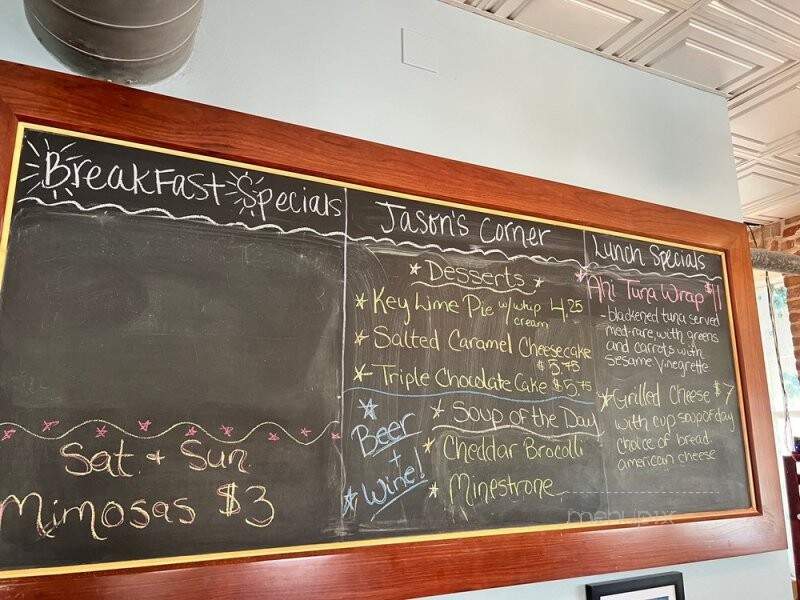 Breakfast Specials
Sat + Sun
Mimosas $3
Jason's Corner
Desserts
Key Lime Pie w/ whip cream 4.25
Salted Caramel Cheesecake
$5.75
Triple Chocolate Cake $5.75
Beer
+
Wine!
Soup of the Day
Cheddar Brocolli
Minestrone
Lunch Specials
Ahi Tuna Wrap $11
- blackened tuna served
med-rare, with greens
and carrots with
sesame vinegrette
Grilled Cheese $7
with cup soup of day
choice of bread
american cheese
menupix